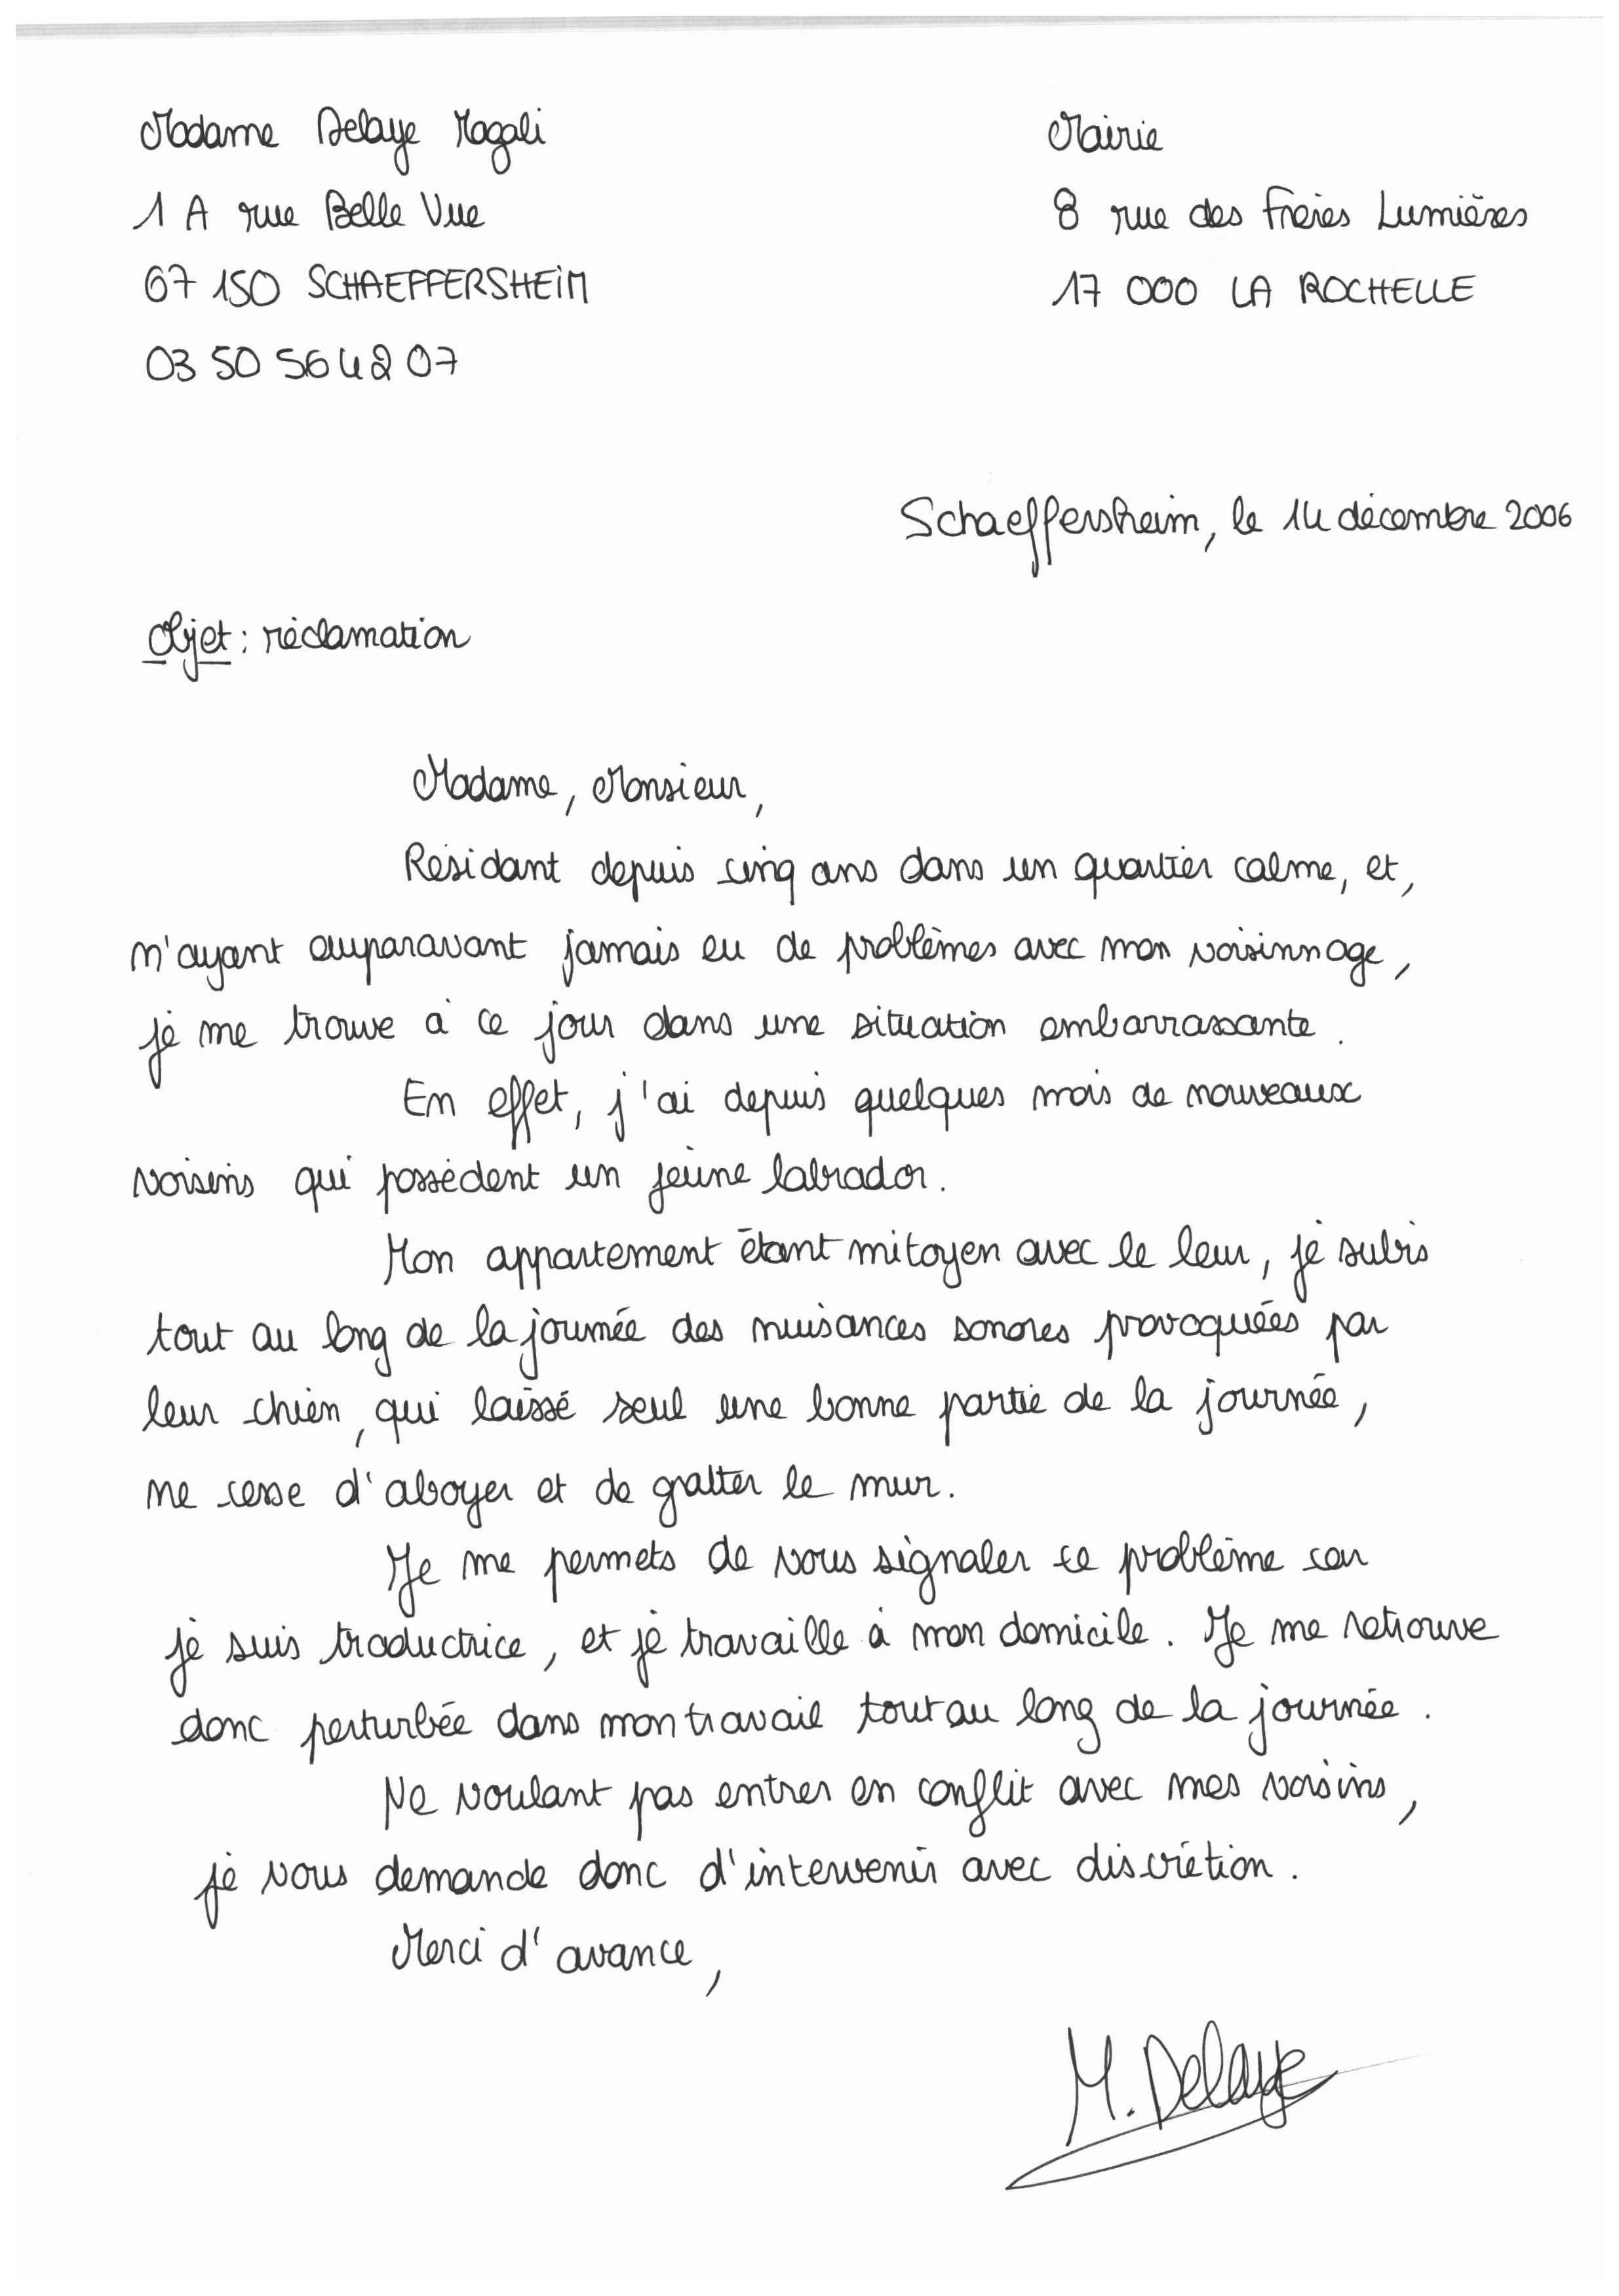 Madame Delaye Magali
1 A rue Belle Vue
67 150 SCHAEFFERSHEIM
03 50 56 42 07
Mairie
8 rue des Frères Lumières
17 000 LA ROCHELLE
Schaeffersheim, le 14 décembre 2006
Objet : réclamation
Madame, Monsieur,
Résidant depuis cinq ans dans un quartier calme, et,
n'ayant auparavant jamais eu de problèmes avec mon voisinnage,
je me trouve à ce jour dans une situation embarrassante.
En effet, j'ai depuis quelques mois de nouveaux
voisins qui possèdent un jeune labrador.
Mon appartement étant mitoyen avec le leur, je subis
tout au long de la journée des nuisances sonores provoquées par
leur chien, qui laissé seul une bonne partie de la journée,
ne cesse d'aboyer et de gratter le mur.
Je me permets de vous signaler ce problème car
je suis traductrice, et je travaille à mon domicile. Je me retrouve
donc perturbée dans mon travail tout au long de la journée.
Ne voulant pas entrer en conflit avec mes voisins,
je vous demande donc d'intervenir avec discrétion.
Merci d'avance,
M. Delaye